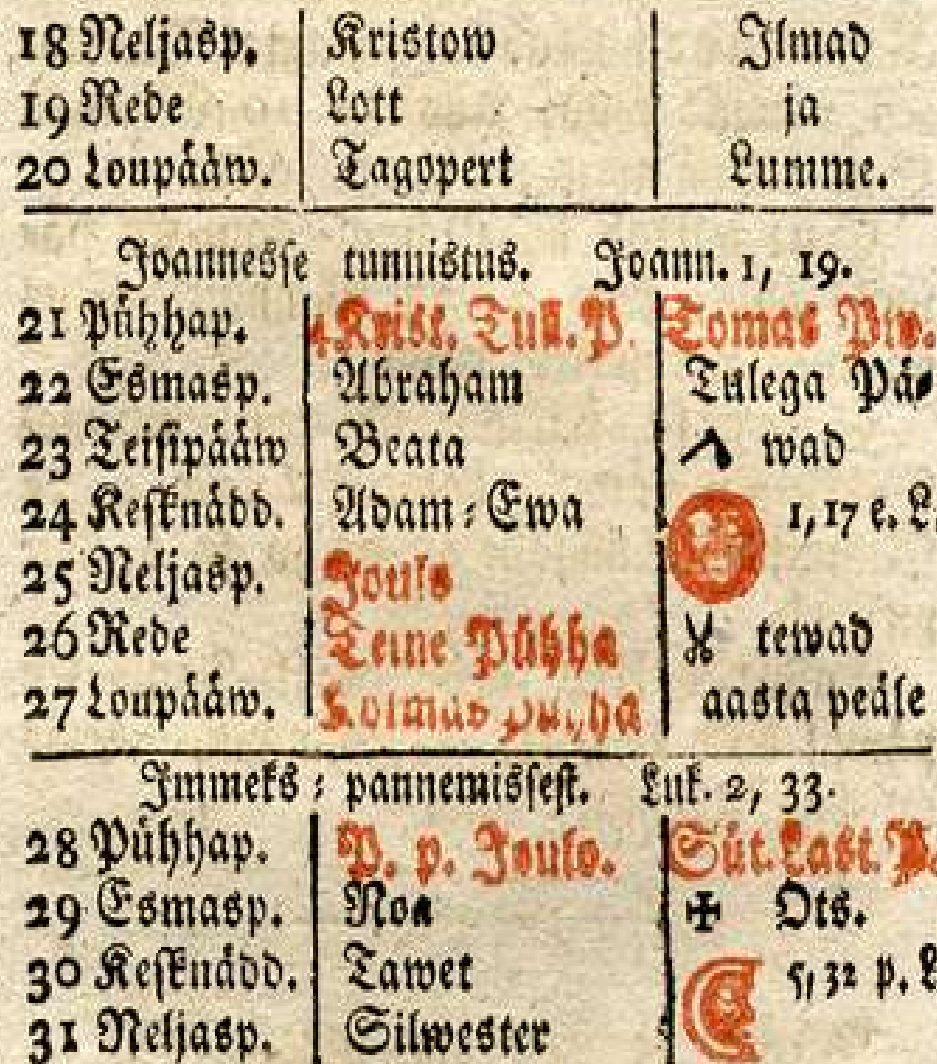 18 Neljasp. Kristow Ilmad
19 Rede Lott ja
20 Loupääw. Tagopert Lumme.
Joannesse tunnistus. Joann. 1, 19.
21 Pühhap. 4 Krist. Tull. P. Tomas Pw.
22 Esmasp. Abraham Tulega Pä-
23 Teisipääw Beata wad
24 Kesknädd. Adam-Ewa 1, 17 e. L.
25 Neljasp. Jouls
26 Rede Teine Pühha tewad
27 Loupääw. Kolmas Pühha aasta peäle
Immeks-pannemissest. Luk. 2, 33.
28 Pühhap. P. p. Joulo. Süt. Last. P.
29 Esmasp. Noa Ots.
30 Kesknädd. Tawet 5, 32 p. L
31 Neljasp. Silwester